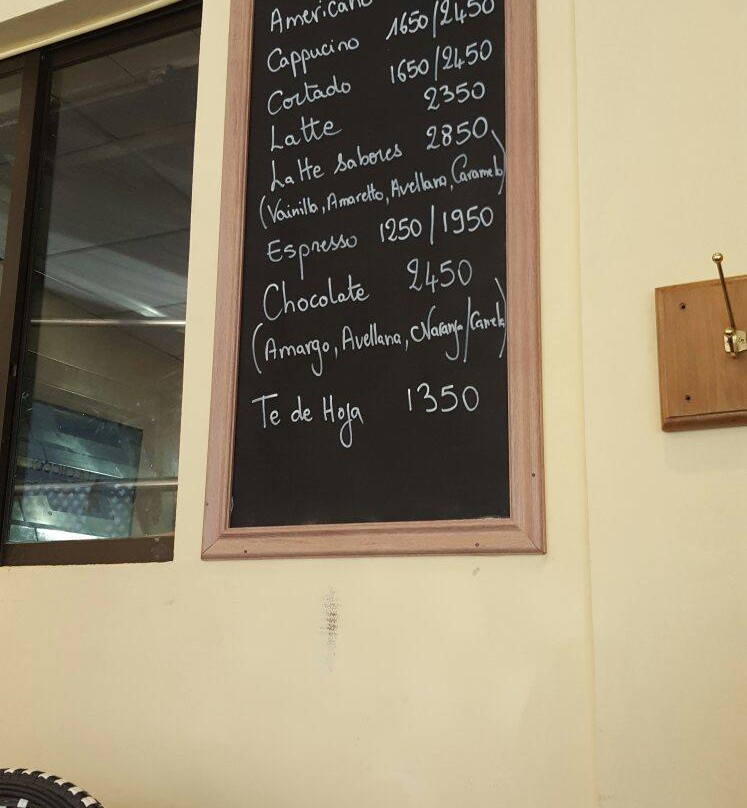 Americano
Cappucino 1650/2450
Cortado 1650/2450
Latte 2350
Latte Sabores 2850
(Vainilla, Amaretto, Avellana, Caramelo)
Espresso 1250/1950
Chocolate 2450
(Amargo, Avellana, Naranja/Canela)
Te de Hoja 1350